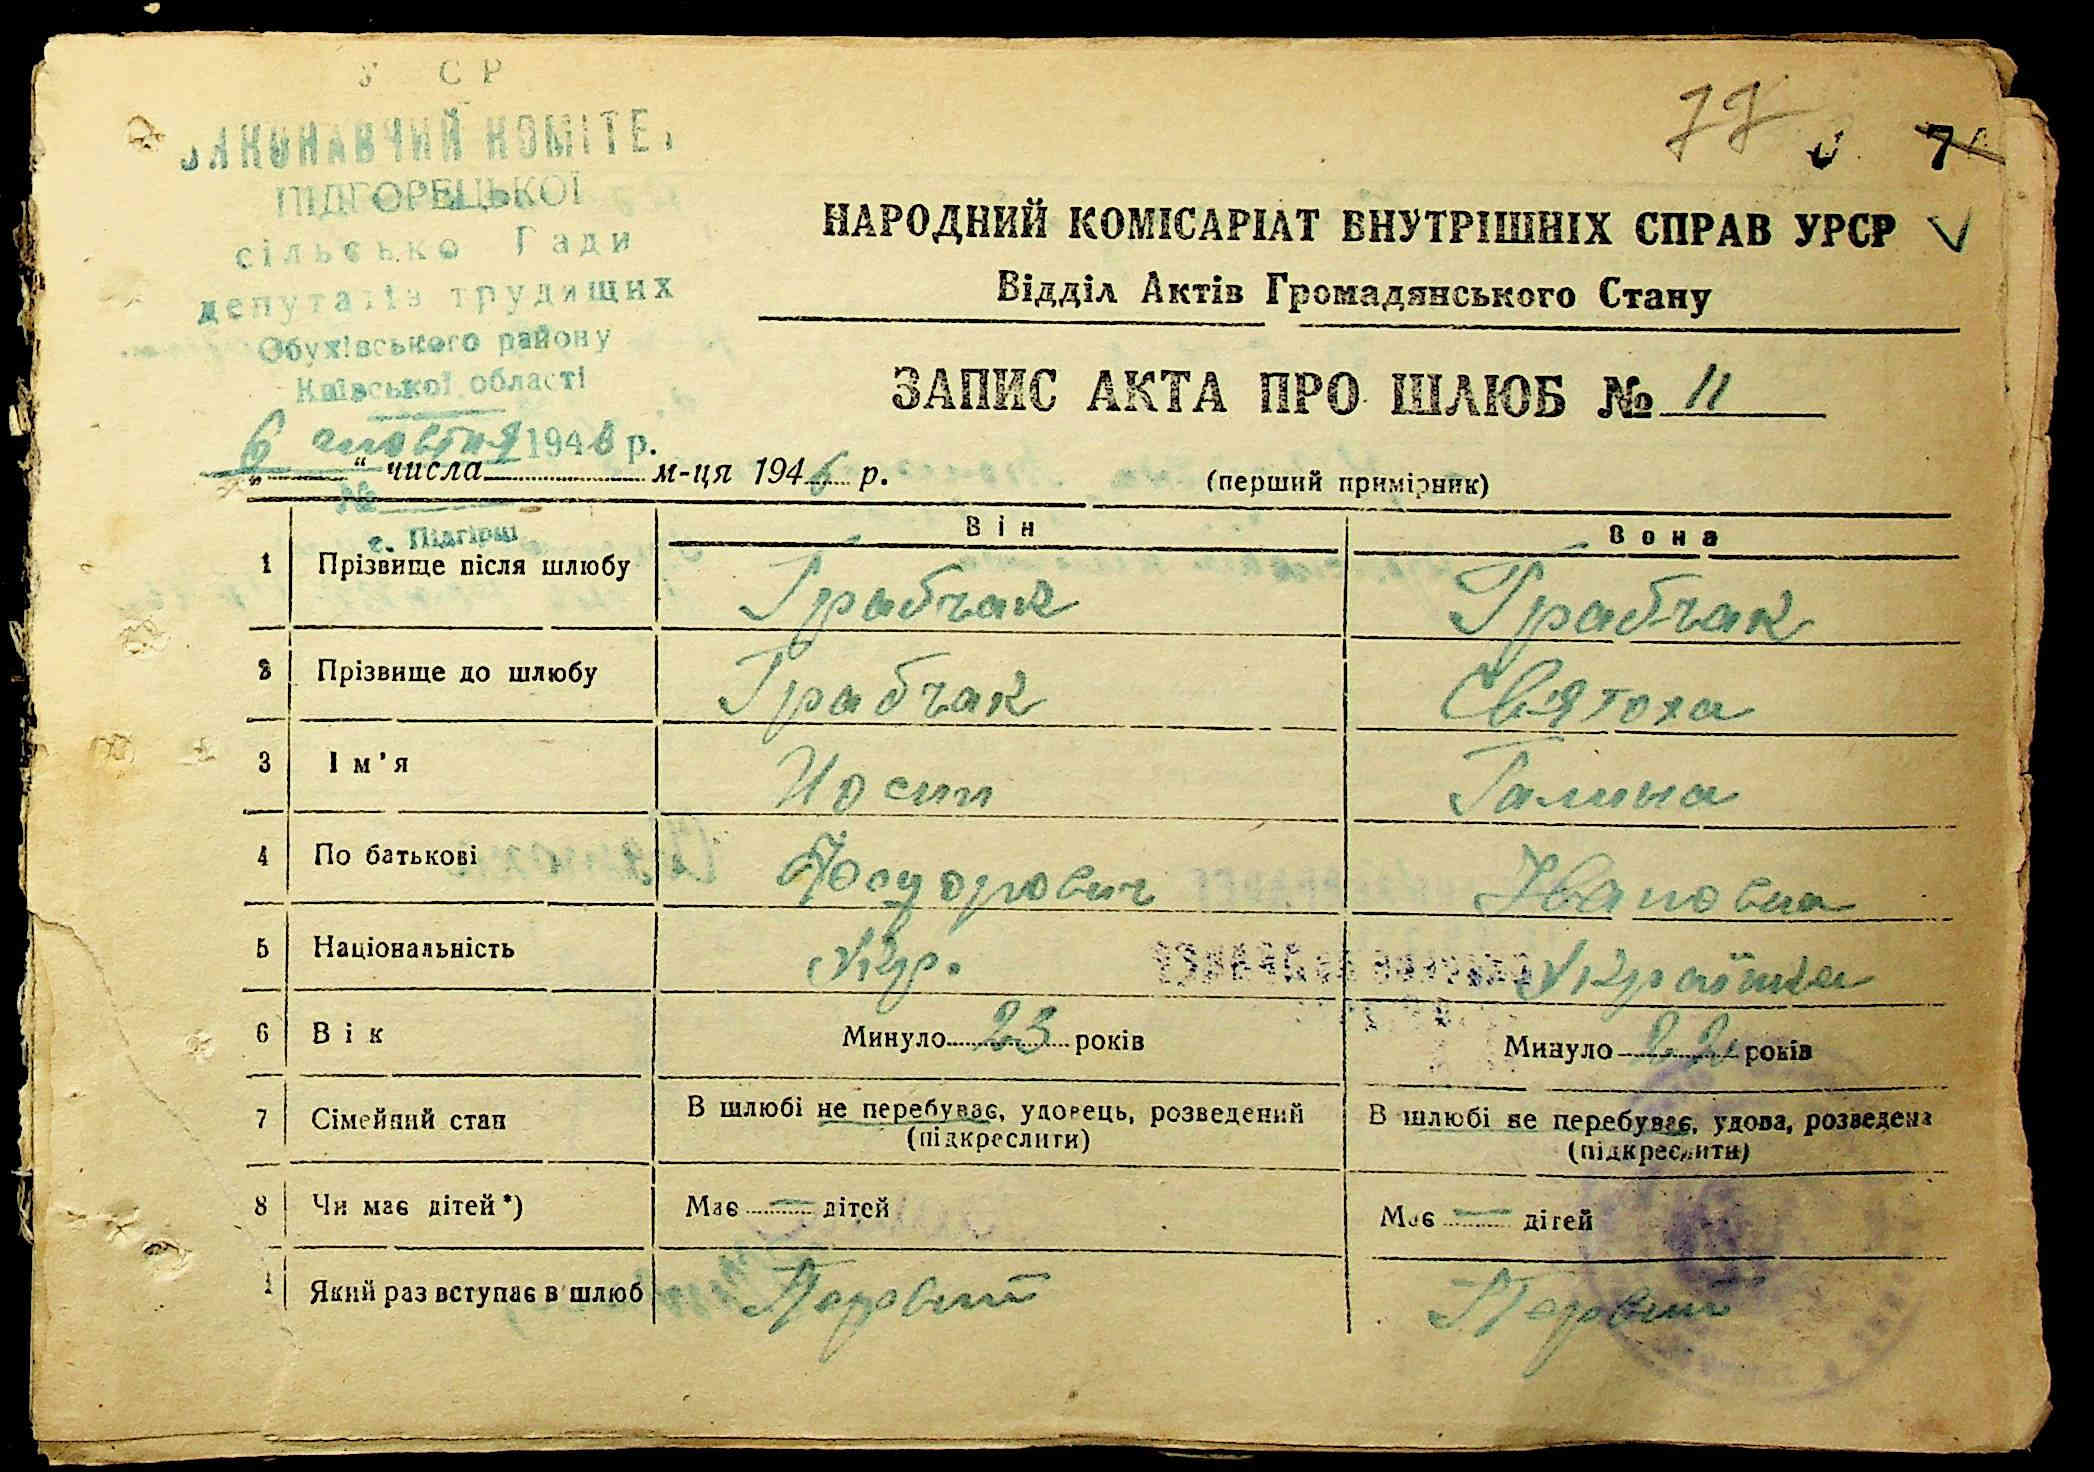 У СР
ВИКОНАВЧИЙ КОМІТЕТ
ПІДГОРЕЦЬКОЇ
сільсько Ради
депутатів трудящих
Обухівського району
Київської області
6 жовтня 1946 р.
№
с. Підгірці
77
7
НАРОДНИЙ КОМІСАРІАТ ВНУТРІШНІХ СПРАВ УРСР V
Відділ Актів Громадянського Стану
ЗАПИС АКТА ПРО ШЛЮБ № 11
„ “ числа м-ця 1946 р.
(перший примірник)
Він Вона
1 Прізвище після шлюбу Грабчак Грабчак
2 Прізвище до шлюбу Грабчак Святоха
3 Ім'я Йосип Галина
4 По батькові Федорович Івановна
5 Національність Укр. Українка
6 Вік Минуло 23 років Минуло 22 років
7 Сімейний стан В шлюбі не перебуває, удовець, розведений (підкреслити) В шлюбі не перебуває, удова, розведена (підкреслити)
8 Чи має дітей*) Має — дітей Має — дітей
Який раз вступає в шлюб Первый Первый